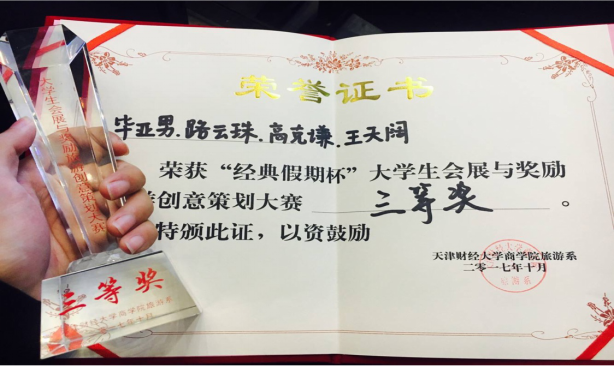 荣誉证书
毕亚男、路云珠、高克谦、王天阔
荣获“经典假期杯”大学生会展与奖励
游创意策划大赛 三等奖 。
特颁此证，以资鼓励
天津财经大学商学院旅游系
二零一七年十月
大学生会展与奖励旅游创意策划大赛
三等奖
财经大学商学院旅游系